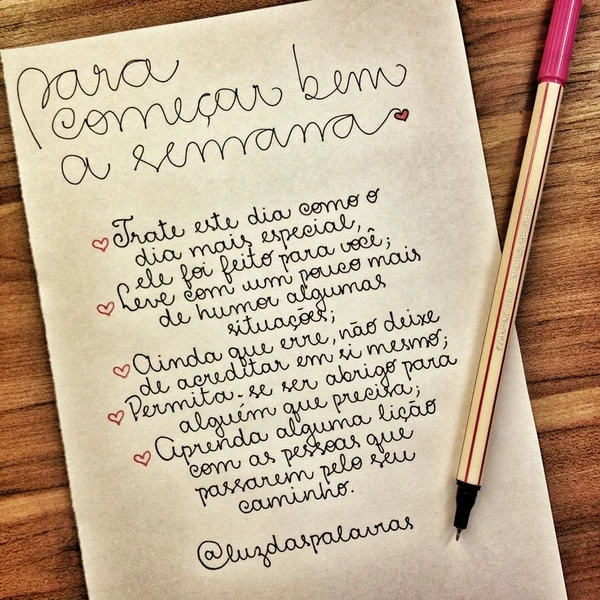 para
começar bem
a semana
Trate este dia como o
dia mais especial,
ele foi feito para você;
Leve com um pouco mais
de humor algumas
situações;
Ainda que erre, não deixe
de acreditar em si mesmo;
Permita-se ser abrigo para
alguém que precisa;
Aprenda alguma lição
com as pessoas que
passarem pelo seu
caminho.
@luzdaspalavras